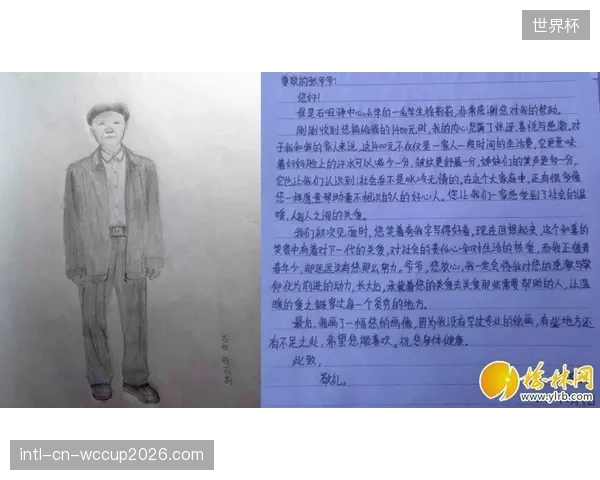 世界杯
尊敬的张爷爷:
您好!
我是石咀驿中心小学的一名学生
非常感谢您对我的帮助。
刚刚收到您捐给我的1400元时,我的内心充满了惊讶、喜悦与感激。对
于我和我的家人来说,这1400元不仅仅是一家人一段时间的生活费,它更意味
着妈妈脸上的汗水可以减少一分,皱纹更舒展一分,姊妹们的笑声更多一分,
它也让我们认识到:社会并不是冰冷无情的,在这个大家庭中,还有很多像
您一样愿意帮助着不相识的人的好心人。您让我们一家感受到了社会的温
暖,人与人之间的关爱。
我们初次见面时,您笑着夸我字写得好看,现在回想起来,这个和善的
笑容中有着对下一代的关爱,对社会的责任心和对生活的热爱,而我正值青
春年少,却远远没有您那么努力。爷爷,您放心,我一定会将我对您的感激与敬
仰化为前进的动力,长大后,承载着您的关爱去关爱那些需要帮助的人,让温
暖的爱之链穿过每一个贫穷的地方。
最后,我画了一幅您的画像,因为我没有学过专业的绘画,有些地方还
有不足之处,希望您能喜欢。祝您身体健康。
此致,
敬礼。
榆林网
www.ylrb.com
intl-cn-wccup2026.com